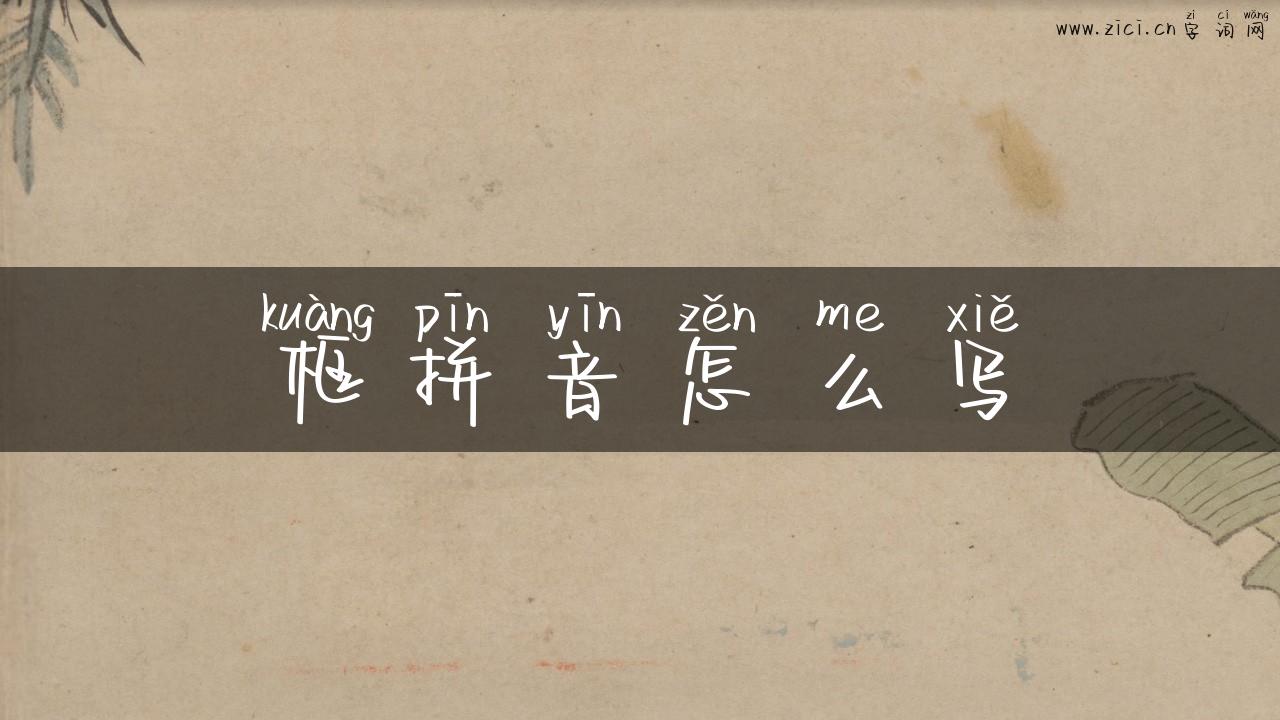 zì cí wǎng
www.zici.cn 字 词 网
kuàng pīn yīn zěn me xiě
框 拼 音 怎 么 写